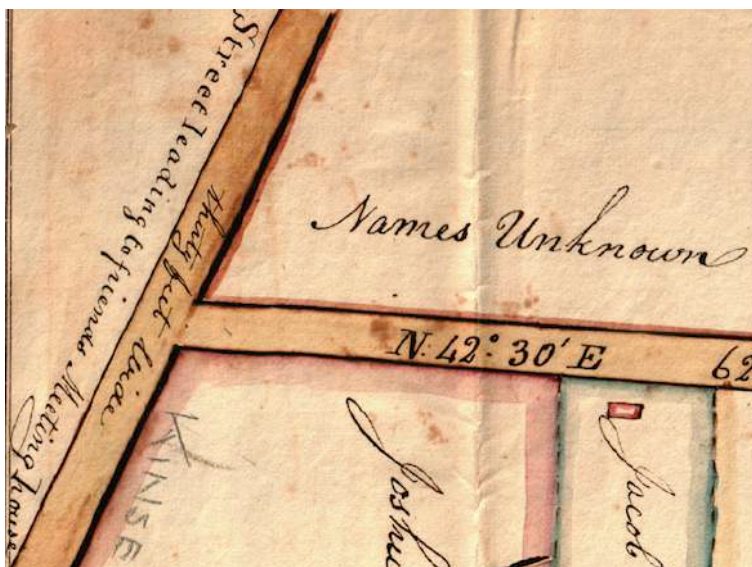 Street leading to friends Meeting house
thirty feet
Names Unknown
N. 42° 30' E 62
Joshu
Jacob
KINSE